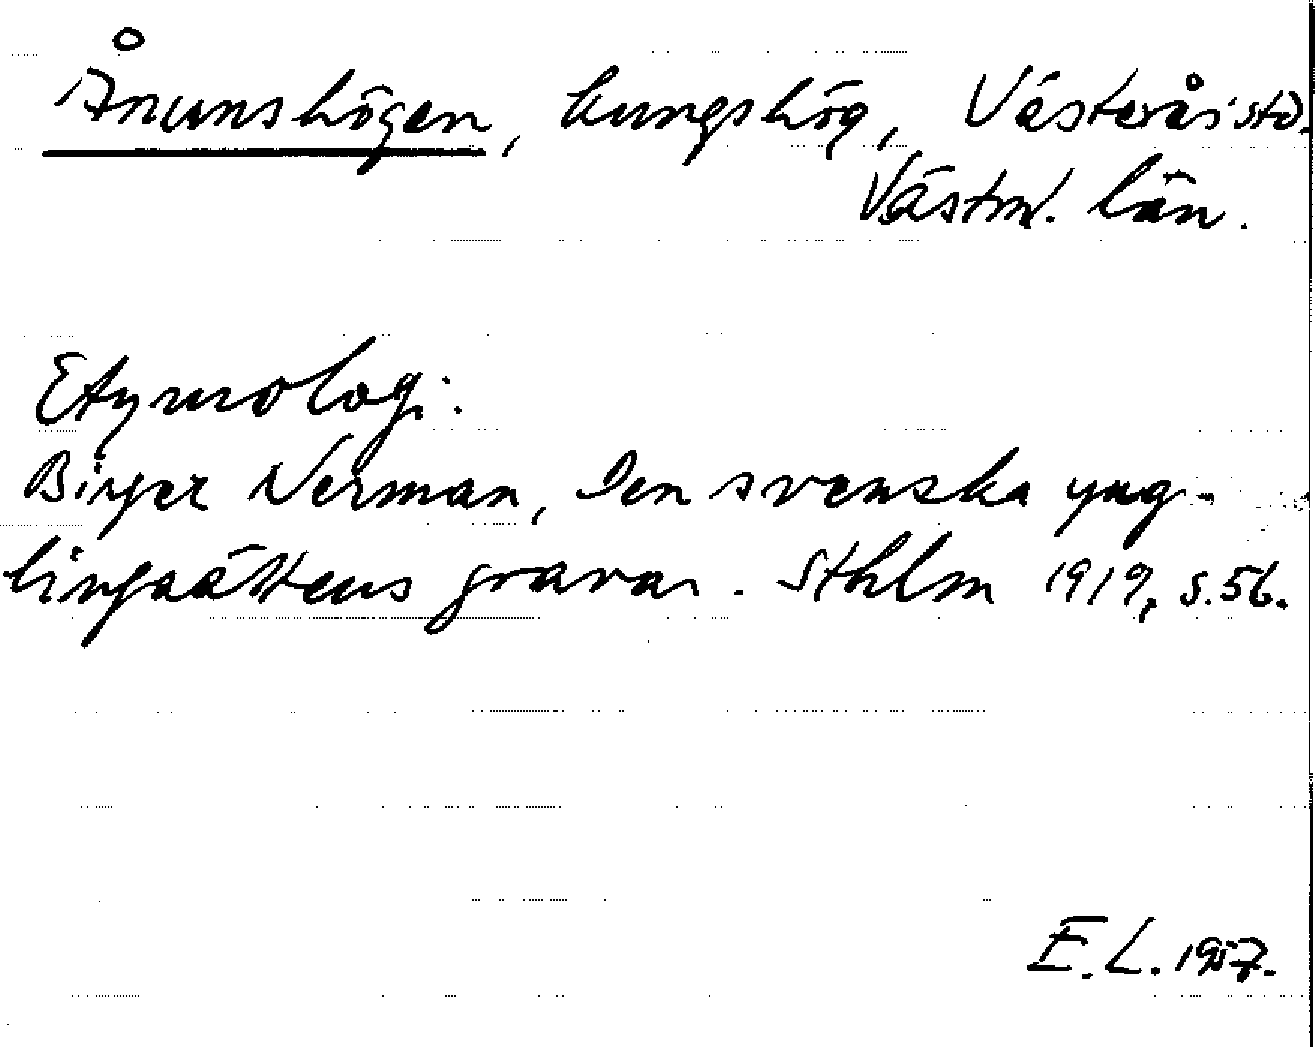 Ånunshögen, kungshög, Västerås std.
Västm. län.
Etymologi:
Birger Nerman, Den svenska yng-
lingaättens gravar. Sthlm 1919, s. 56.
E.L. 1957.